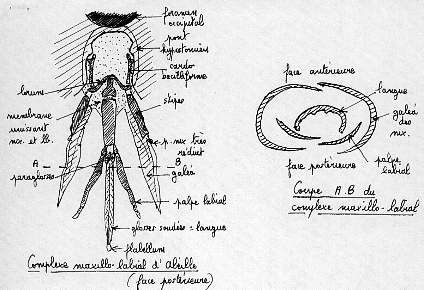 foramen
occipital
pont
hypostomien
cardo
bacilliforme
lorum
stipes
membrane
unissant
mx. et lb.
p. mx très
réduit
A
B
paraglosse
galéa
palpe labial
glosses soudées = langue
flabellum
Complexe maxillo-labial d'Abeille
(face postérieure)
face antérieure
langue
galéa
des
mx.
palpe
labial
face postérieure
Coupe A.B du
complexe maxillo-labial